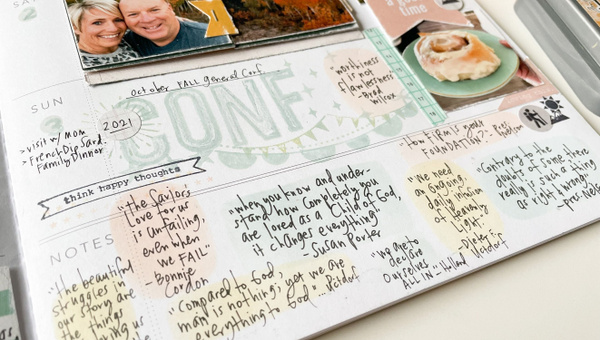 SAT
time
October FALL general Conf.
SUN
CONF
2021
> visit w/ Mom
> French Dip Sand.
Family Dinner
worthiness
is not
flawlessness
- Brad
Wilcox
- How FIRM is your
FOUNDATION? - Russ.
Nelson
think happy thoughts
NOTES
"the Saviors
Love for us
is unfailing,
even when
we FAIL"
- Bonnie
Cordon
"when you know and under-
stand how completely you
are loved as a Child of God,
it changes everything"
- Susan Porter
"We need
an ongoing,
daily infusion
of Heavenly
Light.
- Dieter F.
Uchtdorf
"Contrary to the
doubts of some, there
really is such a thing
as right & wrong"
- pres. Nelson
"the beautiful
struggles in
our story are
the things
us
"Compared to God,
man is nothing; yet we are
everything to God" - Uchtdorf
"we get to
declare
Ourselves
ALL IN" - Holland